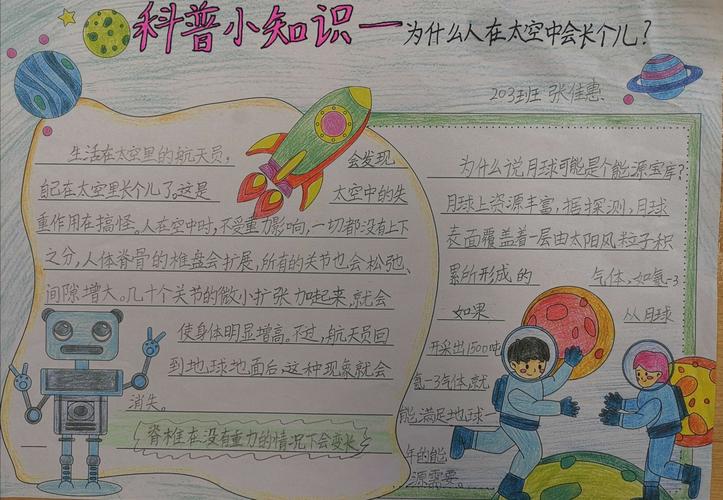 科普小知识—为什么人在太空中会长个儿?
203班 张佳惠
生活在太空里的航天员,会发现
自己在太空里长个儿了。这是太空中的失
重作用在搞怪。人在空中时,不受重力影响,一切都没有上下
之分,人体脊骨的椎盘会扩展,所有的关节也会松弛、
间隙增大。几十个关节的微小扩张加起来,就会
使身体明显增高。不过,航天员回
到地球地面后,这种现象就会
消失。
脊椎在没有重力的情况下会变长
为什么说月球可能是个能源宝库?
月球上资源丰富,据探测,月球
表面覆盖着一层由太阳风粒子积
累所形成的气体,如氦-3
如果从月球
开采出1500吨
氦-3气体,就
能满足地球
年的能
源需要。